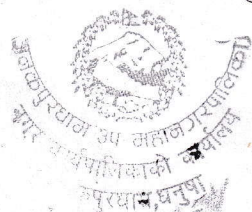 जनकपुरधाम उप महानगरपालिका
नगर कार्यपालिकाको कार्यालय
जनकपुरधाम, धनुषा